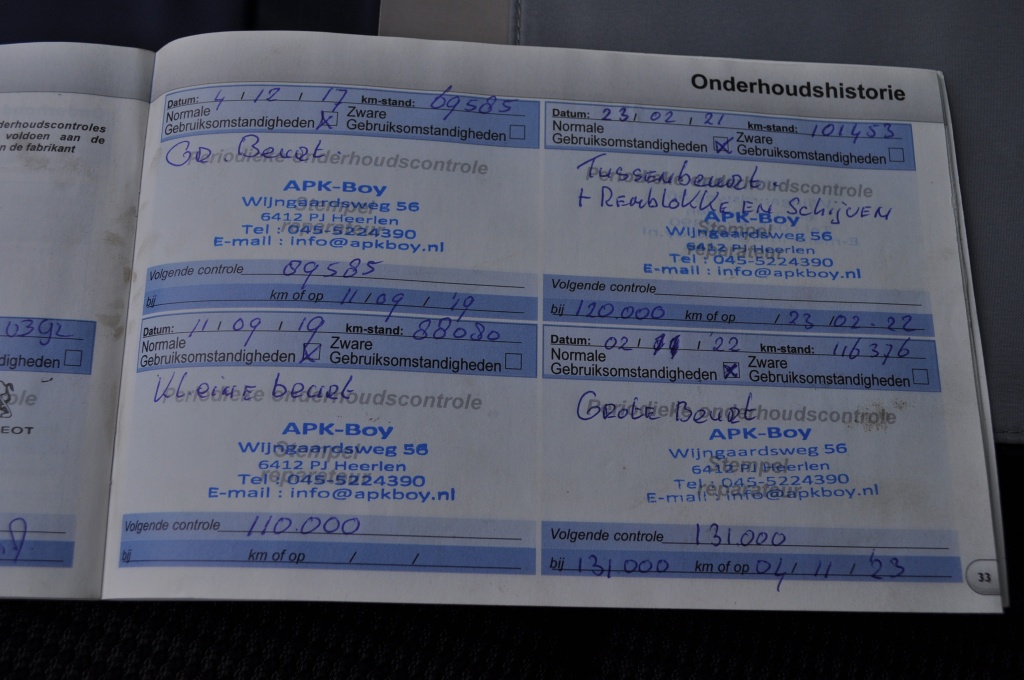 derhoudscontroles
voldoen aan de
n de fabrikant
digheden
EOT
Onderhoudshistorie
Datum: 4 / 12 / 17 km-stand: 69585
Normale Zware
Gebruiksomstandigheden X Gebruiksomstandigheden
GR. Beurt.
Periodieke onderhoudscontrole
APK-Boy
Wijngaardsweg 56
Stempel
6412 PJ Heerlen
reparateur
Tel : 045-5224390
E-mail : info@apkboy.nl
Volgende controle 89585
bij km of op 11 / 09 / '19
Datum: 11 / 09 / 19 km-stand: 88080
Normale Zware
Gebruiksomstandigheden X Gebruiksomstandigheden
Kleine beurt
Periodieke onderhoudscontrole
APK-Boy
Wijngaardsweg 56
Stempel
6412 PJ Heerlen
reparateur
Tel : 045-5224390
E-mail : info@apkboy.nl
Volgende controle 110.000
bij km of op / /
Datum: 23 / 02 / 21 km-stand: 101453
Normale Zware
Gebruiksomstandigheden X Gebruiksomstandigheden
Tussenbeurt.
Periodieke onderhoudscontrole
+ Remblokke en Schijven
APK-Boy
Wijngaardsweg 56
Stempel
6412 PJ Heerlen
reparateur
Tel : 045-5224390
E-mail : info@apkboy.nl
Volgende controle
bij 120.000 km of op 23 / 02 - 22
Datum: 02 / 11 / '22 km-stand: 116376
Normale Zware
Gebruiksomstandigheden X Gebruiksomstandigheden
Grote Beurt
Periodieke onderhoudscontrole
APK-Boy
Wijngaardsweg 56
Stempel
6412 PJ Heerlen
reparateur
Tel : 045-5224390
E-mail : info@apkboy.nl
Volgende controle 131000
bij 131000 km of op 04 / 11 / '23
33